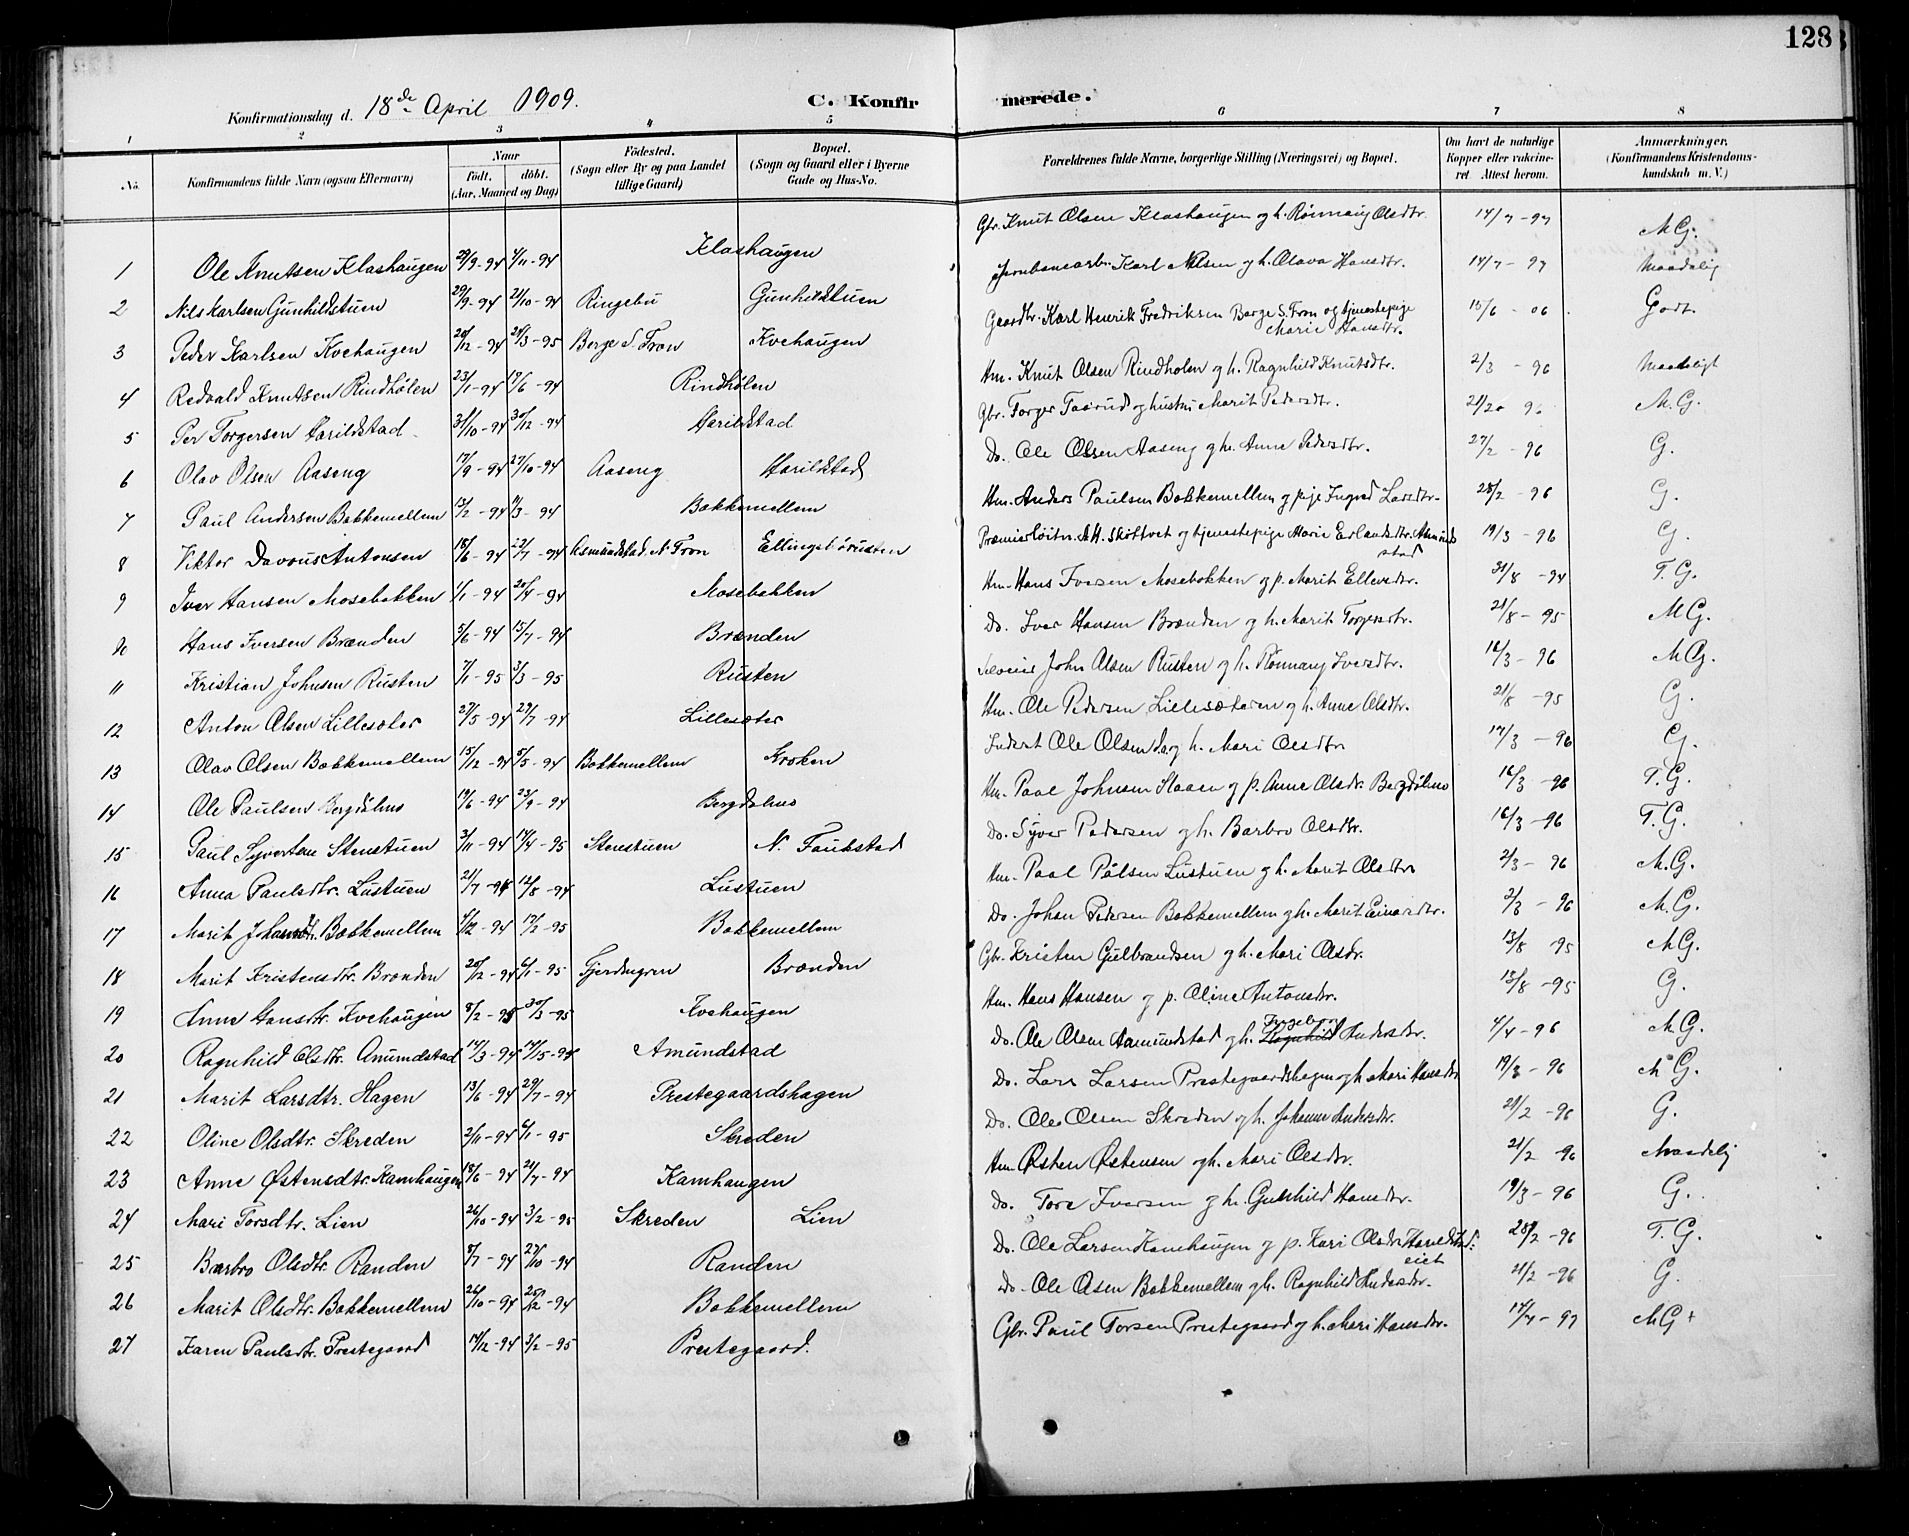 128
Konfirmationsdag d. 18de April 1909.
C. Konfirmerede.
1 2 3 4 5 6 7 8
No. Konfirmandens fulde Navn (ogsaa Efternavn) Naar født. døbt. (Aar, Maaned og Dag) Fødested. (Sogn eller By og paa Landet tillige Gaard) Bopæl. (Sogn og Gaard eller i Byerne Gade og Hus-No. Forældrenes fulde Navne, borgerlige Stilling (Næringsvei) og Bopæl. Om havt de naturlige Kopper eller vakcineret. Attest herom. Anmærkninger. (Konfirmandens Kristendomskundskab m. V.)
1 Ole Knutsen Klashaugen 29/9-94 4/11-94 Klashaugen Gbr. Knut Olsen Klashaugen og h. Rønnaug Olsdtr. 14/7-97 M.G.
2 Nils Karlsen Gunhildstuen 29/9-94 21/10-94 Ringebu Gunhildstuen Jernbanearb. Karl Nilsen og h. Olava Hansdtr. 14/7-97 Maadelig
3 Peder Karlsen Kvehaugen 20/12-94 24/3-95 Berge S. Fron Kvehaugen Gaardbr. Karl Henrik Fredriksen Berge S. Fron og tjenestepige Marie Hansdtr. 15/6-06 Godt.
4 Redvald Knutsen Rindhølen 23/1-94 17/6-94 Rindhølen Hm. Knut Olsen Rindholen og h. Ragnhild Knutsdtr. 2/3-96 Maadeligt
5 Per Torgersen Harildstad 31/10-94 30/12-94 Harildstad Gbr. Torger Taarud og hustru Marit Pedersdtr. M.G.
6 Olav Olsen Aaseng 17/9-94 27/10-94 Aaseng Harildstad Do. Ole Olsen Aaseng og h. Anne Pedersdtr. 27/2-96 G.
7 Paul Andersen Bakkemellem 13/2-94 11/3-94 Bakkemellem Hm. Anders Paulsen Bakkemellem og pige Ingrid Larsdtr. 28/2-96 G.
8 Viktor Antonsen 18/6-94 22/7-94 Asmundstad, N. Fron Ellingsbørusten Præmierløitn. A.H. Skottvet og tjenestepige Marie Erlandsdtr. Asmundstad 19/3-96 G.
9 Iver Hansen Mosebakken 1/1-94 20/4-94 Mosebakken Hm. Hans Iversen Mosebakken og p. Marit Ellevsdtr. 31/8-94 T.G.
10 Hans Iversen Brænden 5/6-94 15/7-94 Brænden Do. Iver Hansen Brænden og h. Marit Torgersdtr. 21/8-95 M.G.
11 Kristian Johnsen Rusten 7/1-95 3/3-95 Rusten John Olsen Rusten og h. Rønnaug Iversdtr. 16/3-96 M.G.
12 Anton Olsen Lillesæter 27/5-94 29/7-94 Lillesæter Hm. Ole Pedersen Lillesæteren og h. Anne Olsdtr. 21/8-95 G.
13 Olav Olsen Bakkemellem 15/12-94 5/5-94 Bakkemellem Kroken Inderst Ole Olsen do. og h. Mari Olsdtr 17/3-96 G.
14 Ole Paulsen Bergdølmo 19/6-94 23/9-94 Bergdølmo Hm. Paal Johnsen Haaen og p. Anne Olsdr. Bergdølmo 16/3-96 T.G.
15 Paul Syversen Stenstuen 3/11-94 14/4-95 Stenstuen N. Faukstad Do. Syver Pedersen og h. Barbro Olsdtr. 16/3-96 T.G.
16 Anna Paulsdtr. Lustuen 21/7-94 12/8-94 Lustuen Hm. Paal Pålsen Lustuen og h. Marit Olsdtr 2/3-96 M.G.
17 Marit Johansdtr. Bakkemellem 4/12-94 17/2-95 Bakkemellem Do. Johan Pedersen Bakkemellem og h. Marit Einarsdtr. 2/3-96 M.G.
18 Marit Kristensdtr. Brænden 20/12-94 6/1-95 Fjerdingren Brænden Gbr. Kristen Gulbrandsen og h. Mari Olsdr. 13/8-95 M.G.
19 Anne Hansdtr. Kvehaugen 8/2-95 30/3-95 Kvehaugen Hm. Hans Hansen og p. Oline Antonsdtr. 13/8-95 G.
20 Ragnhild Olsdtr. Amundstad 14/3-94 14/5-94 Amundstad Do. Ole Olsen Aamundstad og h. Ragnhild Ingeborg Andersdtr. 4/4-96 M.G.
21 Marit Larsdtr. Hagen 13/6-94 29/7-94 Prestegaardshagen Do. Lars Larsen Prestegaardshagen og h. Mari Hansdtr 19/3-96 M.G.
22 Oline Olsdtr. Skreden 2/11-94 6/1-95 Skreden Do. Ole Olsen Skreden og h. Johanne Andersdtr. 21/2-96 G.
23 Anne Østensdtr. Kamhaugen 18/6-94 21/7-94 Kamhaugen Hm. Østen Østensen og h. Mari Olsdtr. 21/2-96 Maadelig
24 Mari Torsdtr. Lien 26/10-94 3/2-95 Skreden Lien Do. Tore Iversen og h. Gunhild Hansdtr. 19/3-96 G.
25 Barbro Olsdtr. Randen 8/7-94 27/10-94 Randen Do. Ole Larsen Kamhaugen og p. Kari Olsdtr Harildstadeiet 28/2-96 T.G.
26 Marit Olsdtr. Bakkemellem 26/10-94 25/12-94 Bakkemellem Do. Ole Olsen Bakkemellem og h. Ragnhild Andersdtr. 21/2-96 G.
27 Karen Paulsdtr. Prestegaard 14/12-94 3/2-95 Prestegaard. Gbr. Paul Torsen Prestegaard og h. Mari Hansdtr. 14/7-97 M.G+